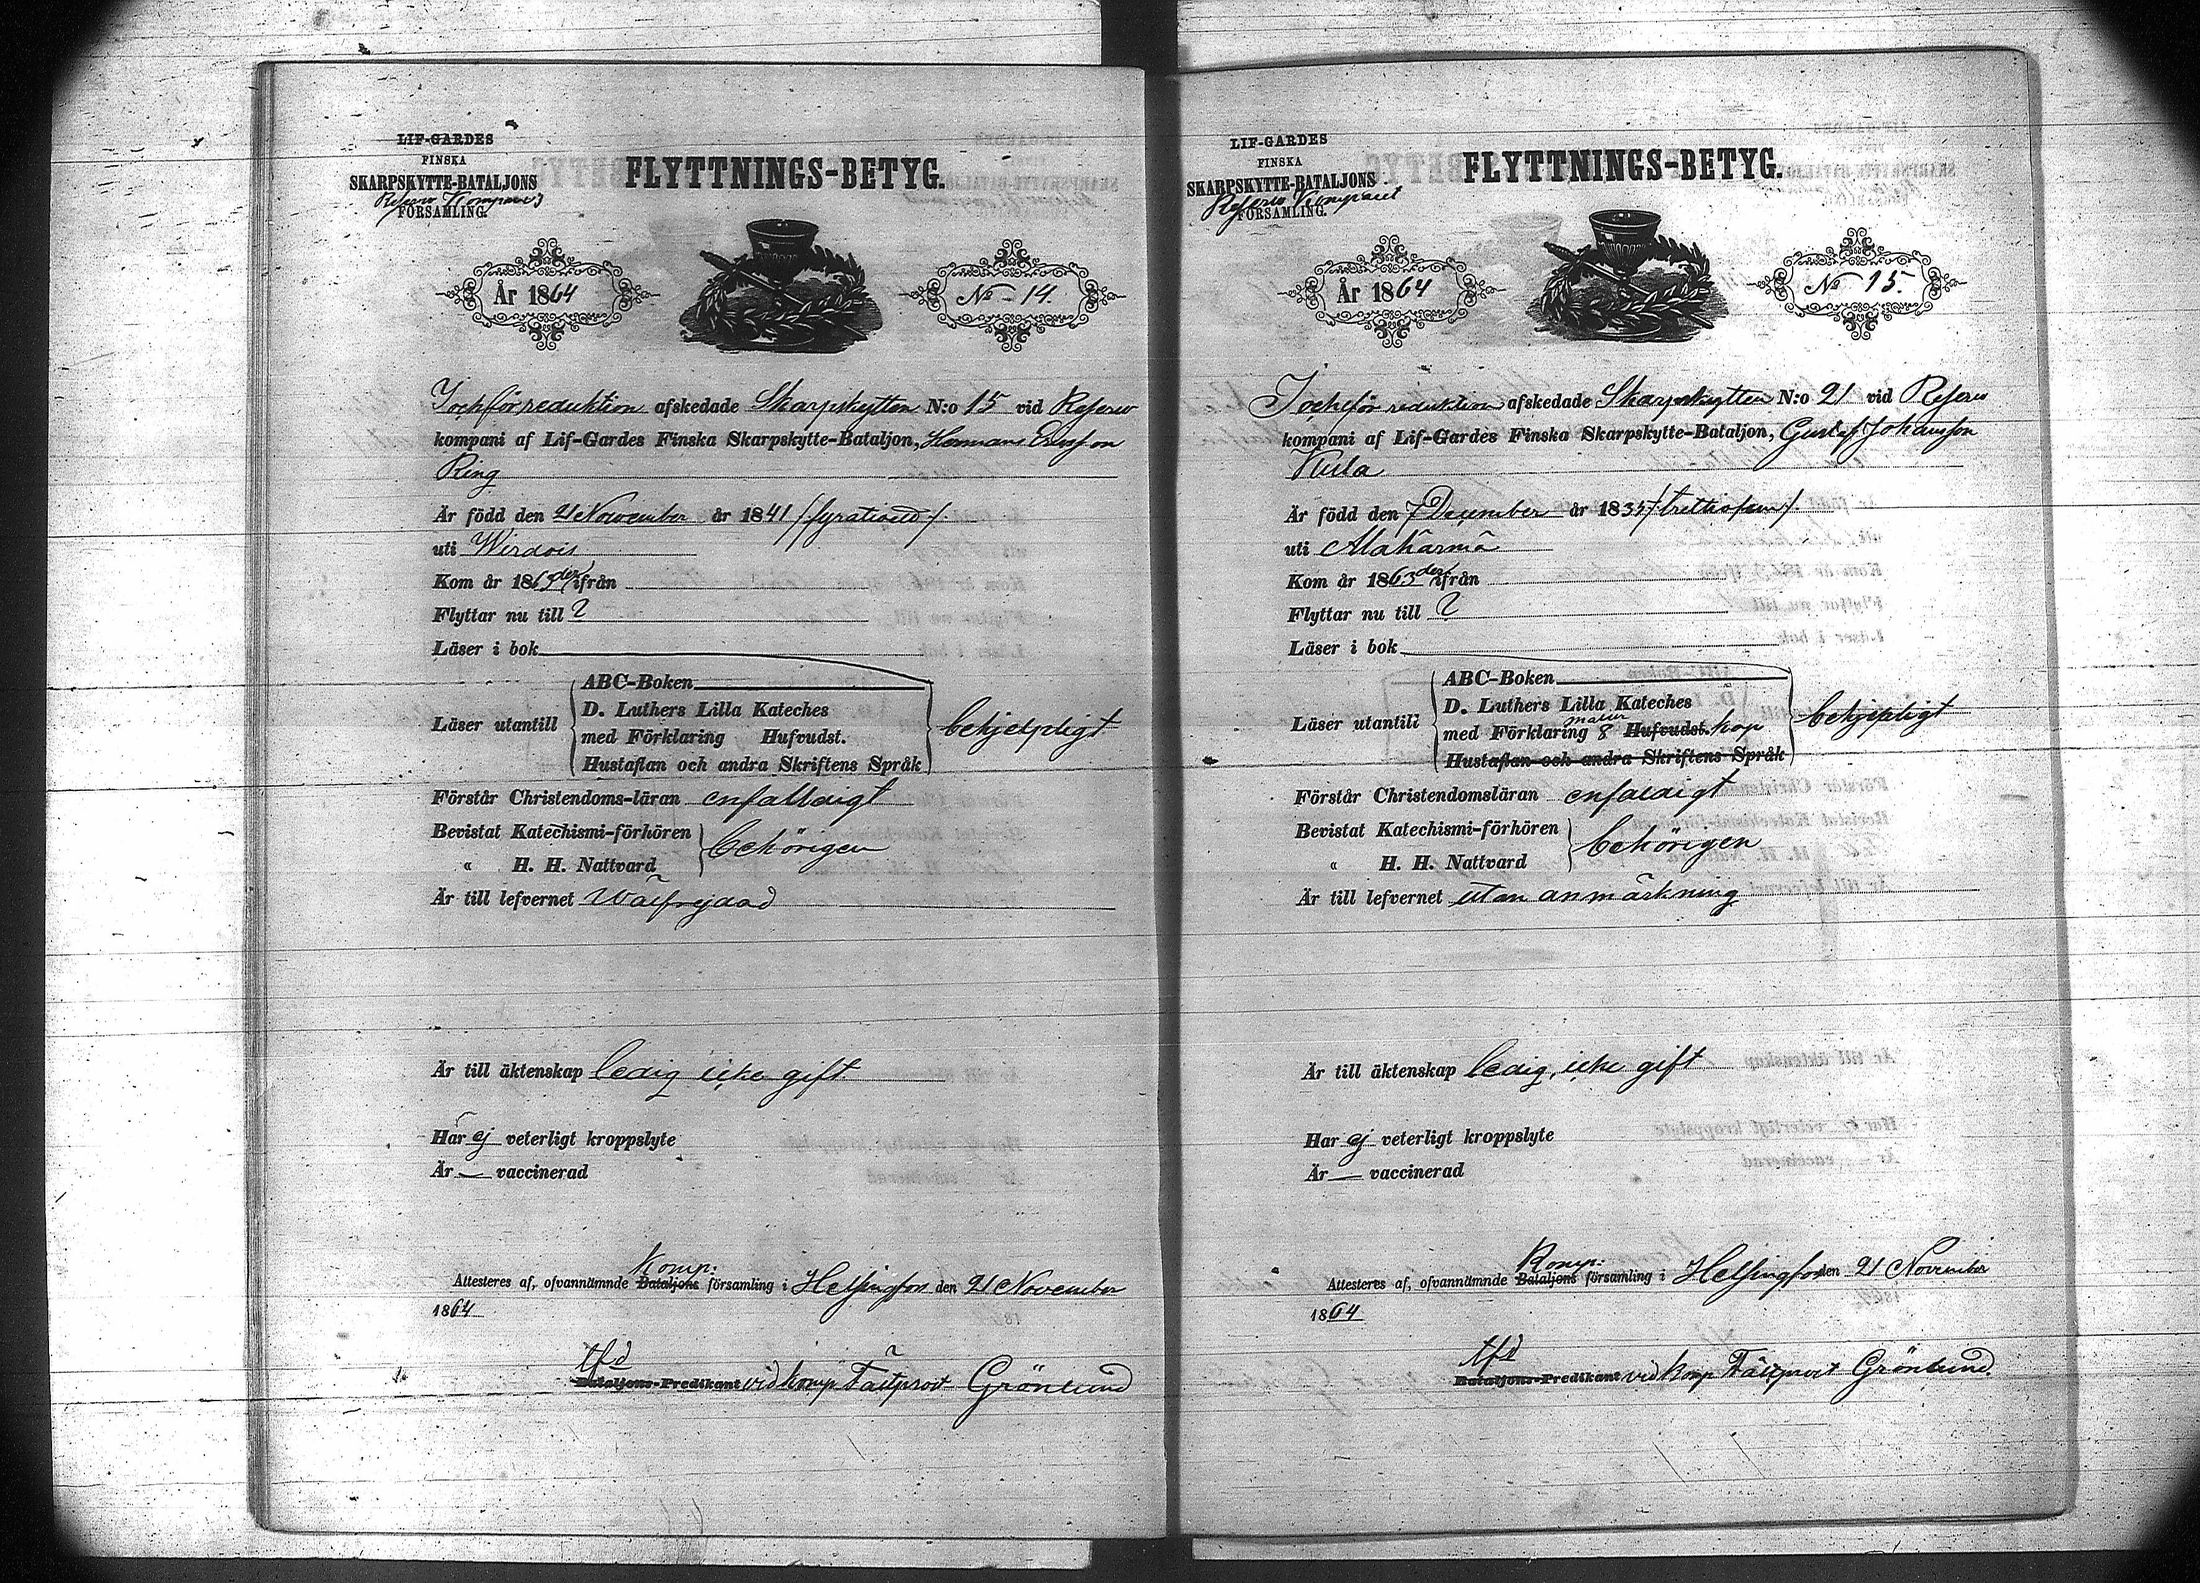 LIF-GARDES
FINSKA
SKARPSKYTTE-BATALJONS
Reserv Kompanis
FÖRSAMLING.
FLYTTNINGS-BETYG.
År 1864
No - 14.
reduktion afskedade Skarpskytten N:o 15 vid Reserv
kompani af Lif-Gardes Finska Skarpskytte-Bataljon, Hermans Ersson
Ring
Är född den 21 November år 1841 /fyrationd/.
uti Wirdois
Kom år 1863 ifrån
Flyttar nu till ?
Läser i bok
Läser utantill
ABC-Boken
D. Luthers Lilla Kateches
med Förklaring Hufvudst.
Hustaflan och andra Skriftens Språk
behjelpligt
Förstår Christendoms-läran enfalldigt
Bevistat Katechismi-förhören
" H. H. Nattvard
behörigen
Är till lefvernet Wälfrejdad
Är till äktenskap ledig icke gift
Har ej veterligt kroppslyte
Är — vaccinerad
Komp:
Attesteres af, ofvannämnde Bataljons församling i Helsingfors den 21 November
1864
tfd
Bataljons-Predikant vid komp Fältprost Grönlund
LIF-GARDES
FINSKA
SKARPSKYTTE-BATALJONS
Reserv Kompaniet
FÖRSAMLING.
FLYTTNINGS-BETYG.
År 1864
No 15.
reduktion afskedade Skarpskytten N:o 21 vid Reserv
kompani af Lif-Gardes Finska Skarpskytte-Bataljon, Gustaf Johansson
Kula
Är född den 7 December år 1835 /trettiofem/.
uti Alahärmä
Kom år 1863 ifrån
Flyttar nu till ?
Läser i bok
Läser utantill
ABC-Boken
D. Luthers Lilla Kateches
med Förklaring & Hufvudst.
Hustaflan och andra Skriftens Språk
behjelpligt
Förstår Christendomsläran enfaldigt
Bevistat Katechismi-förhören
" H. H. Nattvard
behörigen
Är till lefvernet utan anmärkning
Är till äktenskap ledig, icke gift
Har ej veterligt kroppslyte
Är — vaccinerad
Komp:
Attesteres af, ofvannämnde Bataljons församling i Helsingfors den 21 November
1864
tfd
Bataljons-Predikant vid komp Fältprost Grönlund.